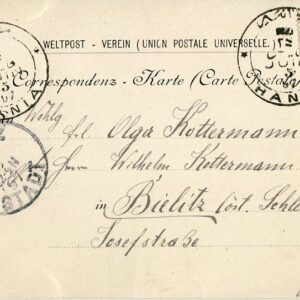 WELTPOST - VEREIN (UNION POSTALE UNIVERSELLE.)
Correspondenz - Karte (Carte Postale
Olga Kottermann
Herrn Wilhelm Kottermann
in Bielitz (öst. Schle
Josefstraße
HAN
ANIA
STADT